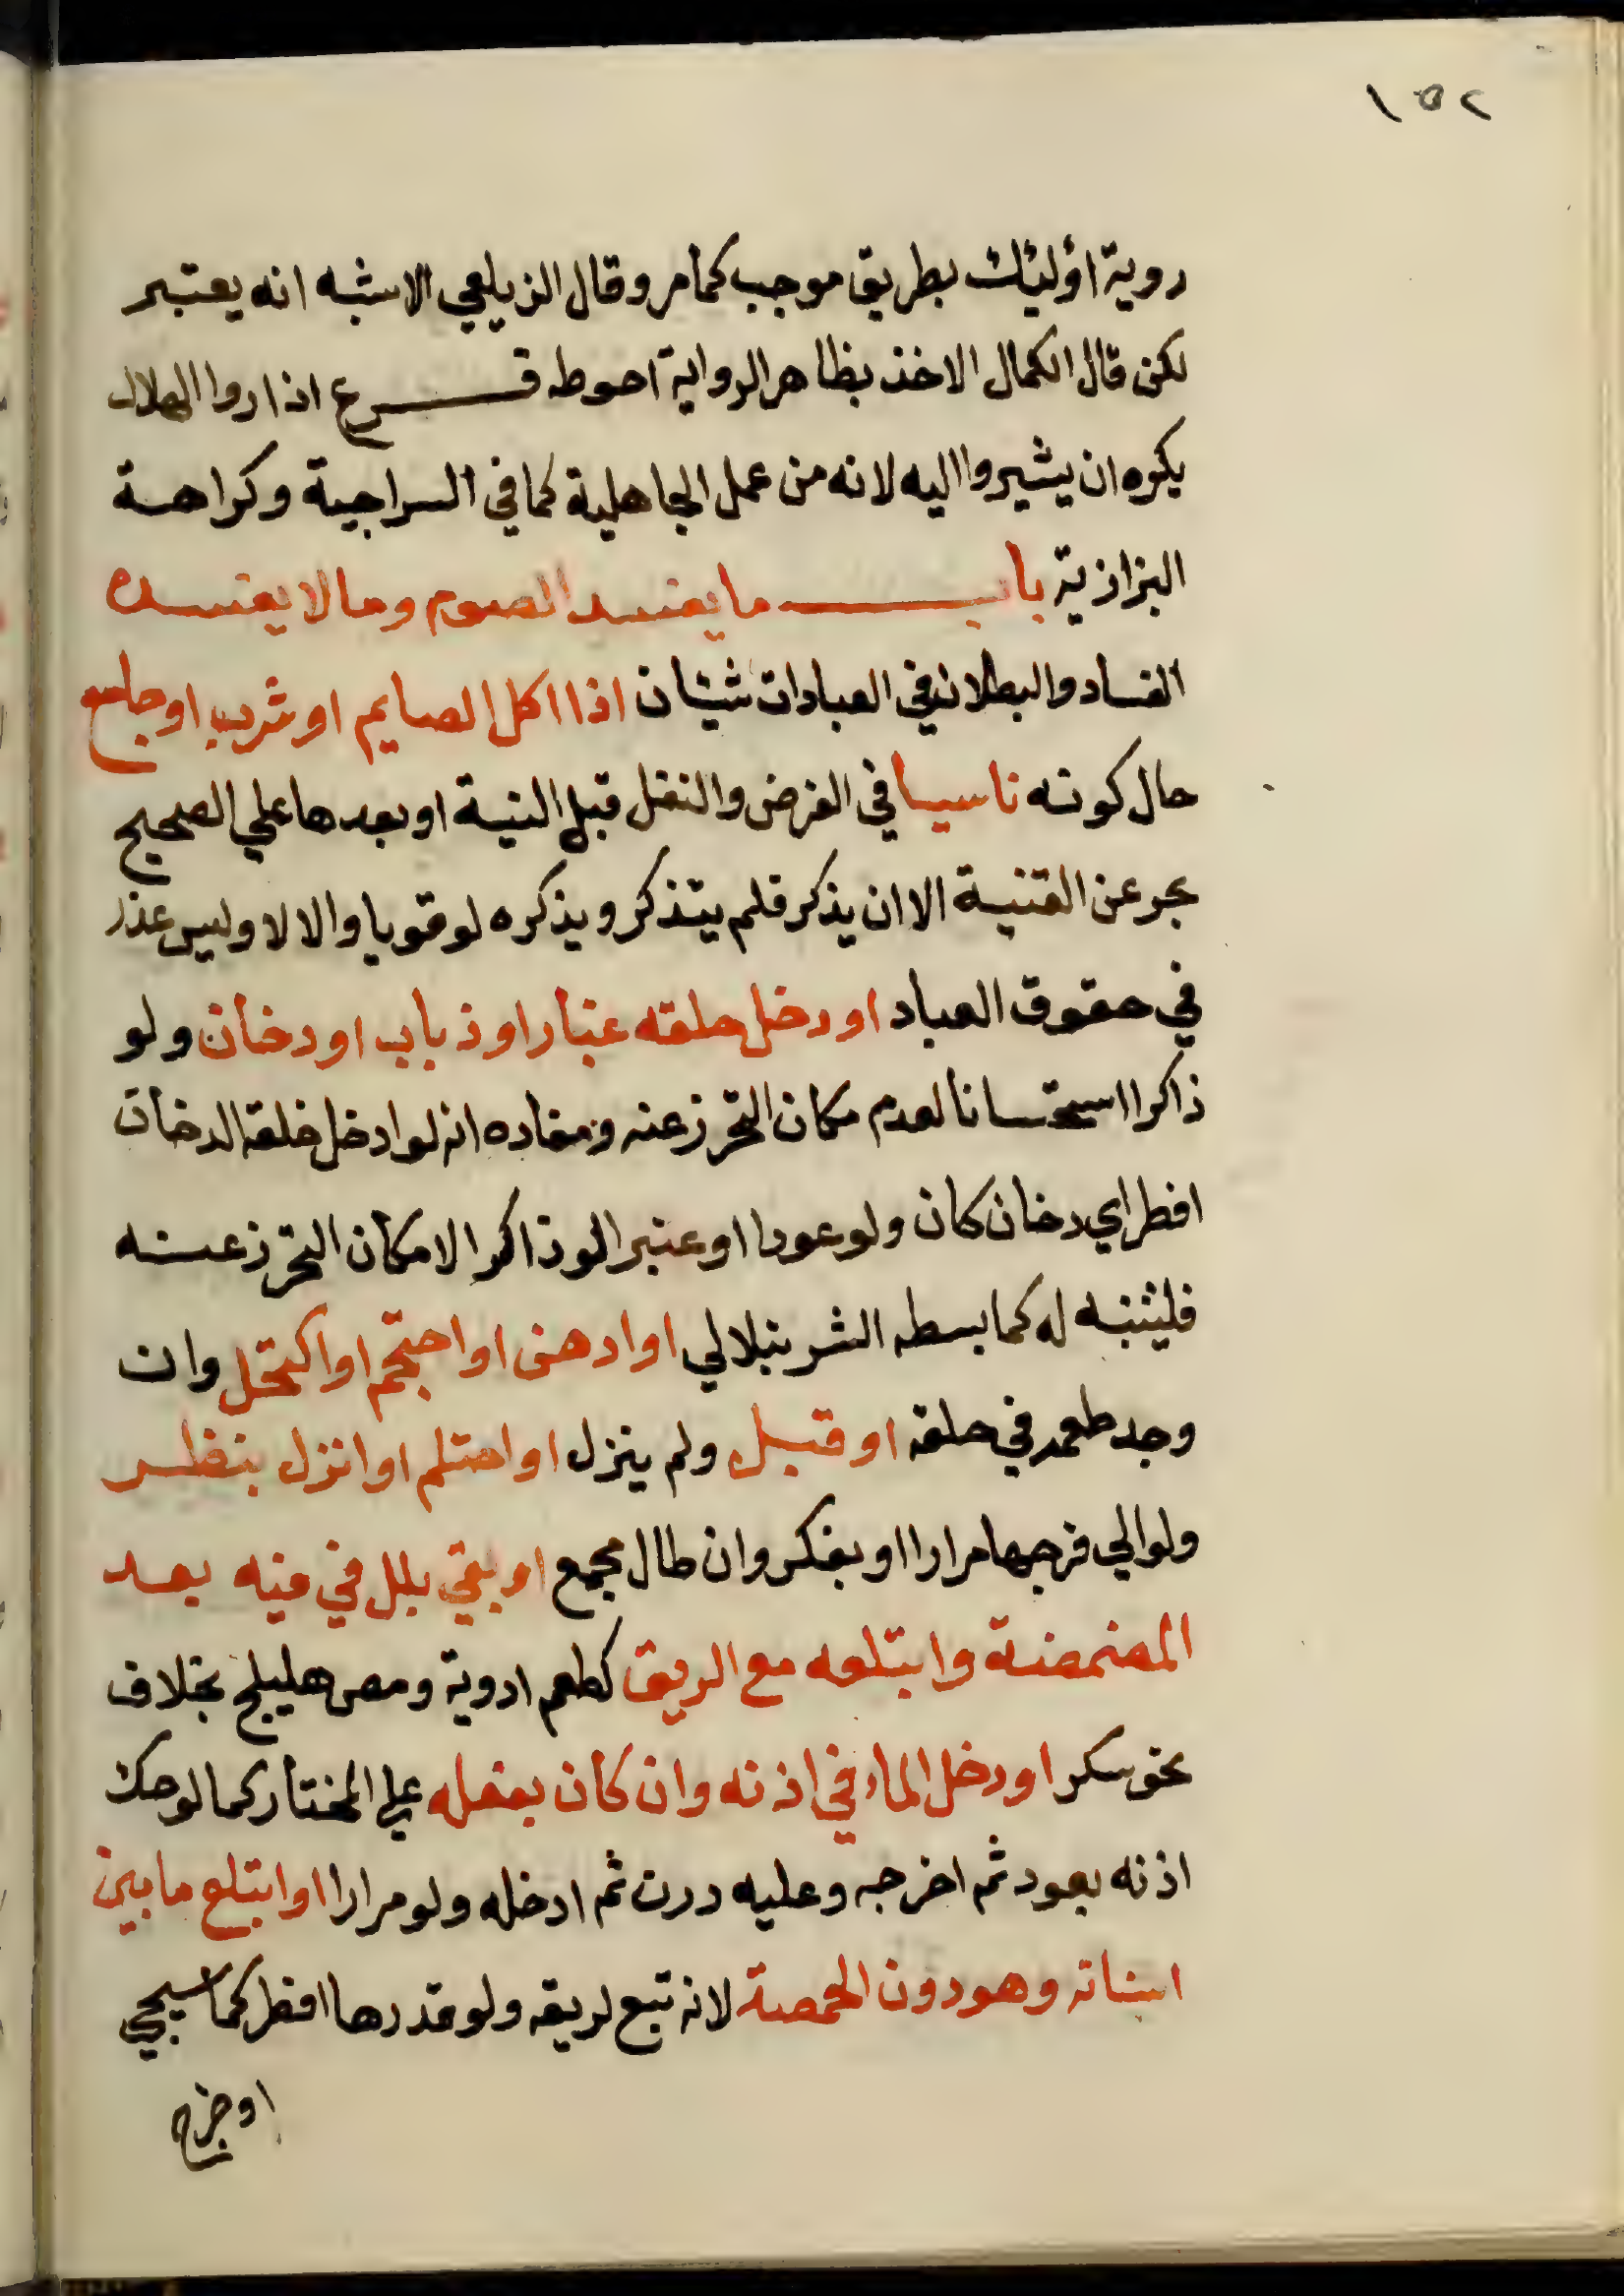 ١٥٢
روية اؤليئك بطريق موجب كمامر وقال الزيلعي الاشبه انه يعتبر
لكن قال الكمال الاخذ بظاهر الرواية احوط فرع اذا روا الهلال
يكره ان يشيروا اليه لانه من عمل الجاهلية كما في السراجية وكراهة
البزازية باب ما يفسد الصوم وما لا يفسده
الفساد والبطلان في العبادات شيئان اذا اكل الصايم او شرب او جامع
حال كونه ناسيا في الفرض والنفل قبل النية او بعدها علي الصحيح
بحر عن القنية الا ان يذكر فلم يتذكر ويذكره لو قويا والا لا وليس عذر
في حقوق العباد او دخل حلقه غبار او ذباب او دخان ولو
ذاكرا استحسانا لعدم مكان التحرز عنه ومفاده انه لو ادخل خلقه الدخان
افطر اي دخان كان ولو عودا او عنبر الو ذاكرا لامكان التحرز عنه
فليتنبه له كما بسطه الشرنبلالي او ادهن او احتجم او اكتحل وان
وجد طعمه في حلقه او قبل ولم ينزل او احتلم او انزل بنظر
ولو الي فرجها مرارا او بفكر وان طال مجمع او بقي بلل في فيه بعد
المضمضة وابتلعه مع الريق كطعم ادوية ومص هليلج بخلاف
نحو سكر او دخل الماء في اذنه وان كان بفعله علي المختار كما لو حك
اذنه بعود ثم اخرجه وعليه درن ثم ادخله ولو مرارا او ابتلع ما بين
اسنانه وهو دون الحمصة لانه تبع لريقه ولو قدرها افطر كما سيجي
او خرج